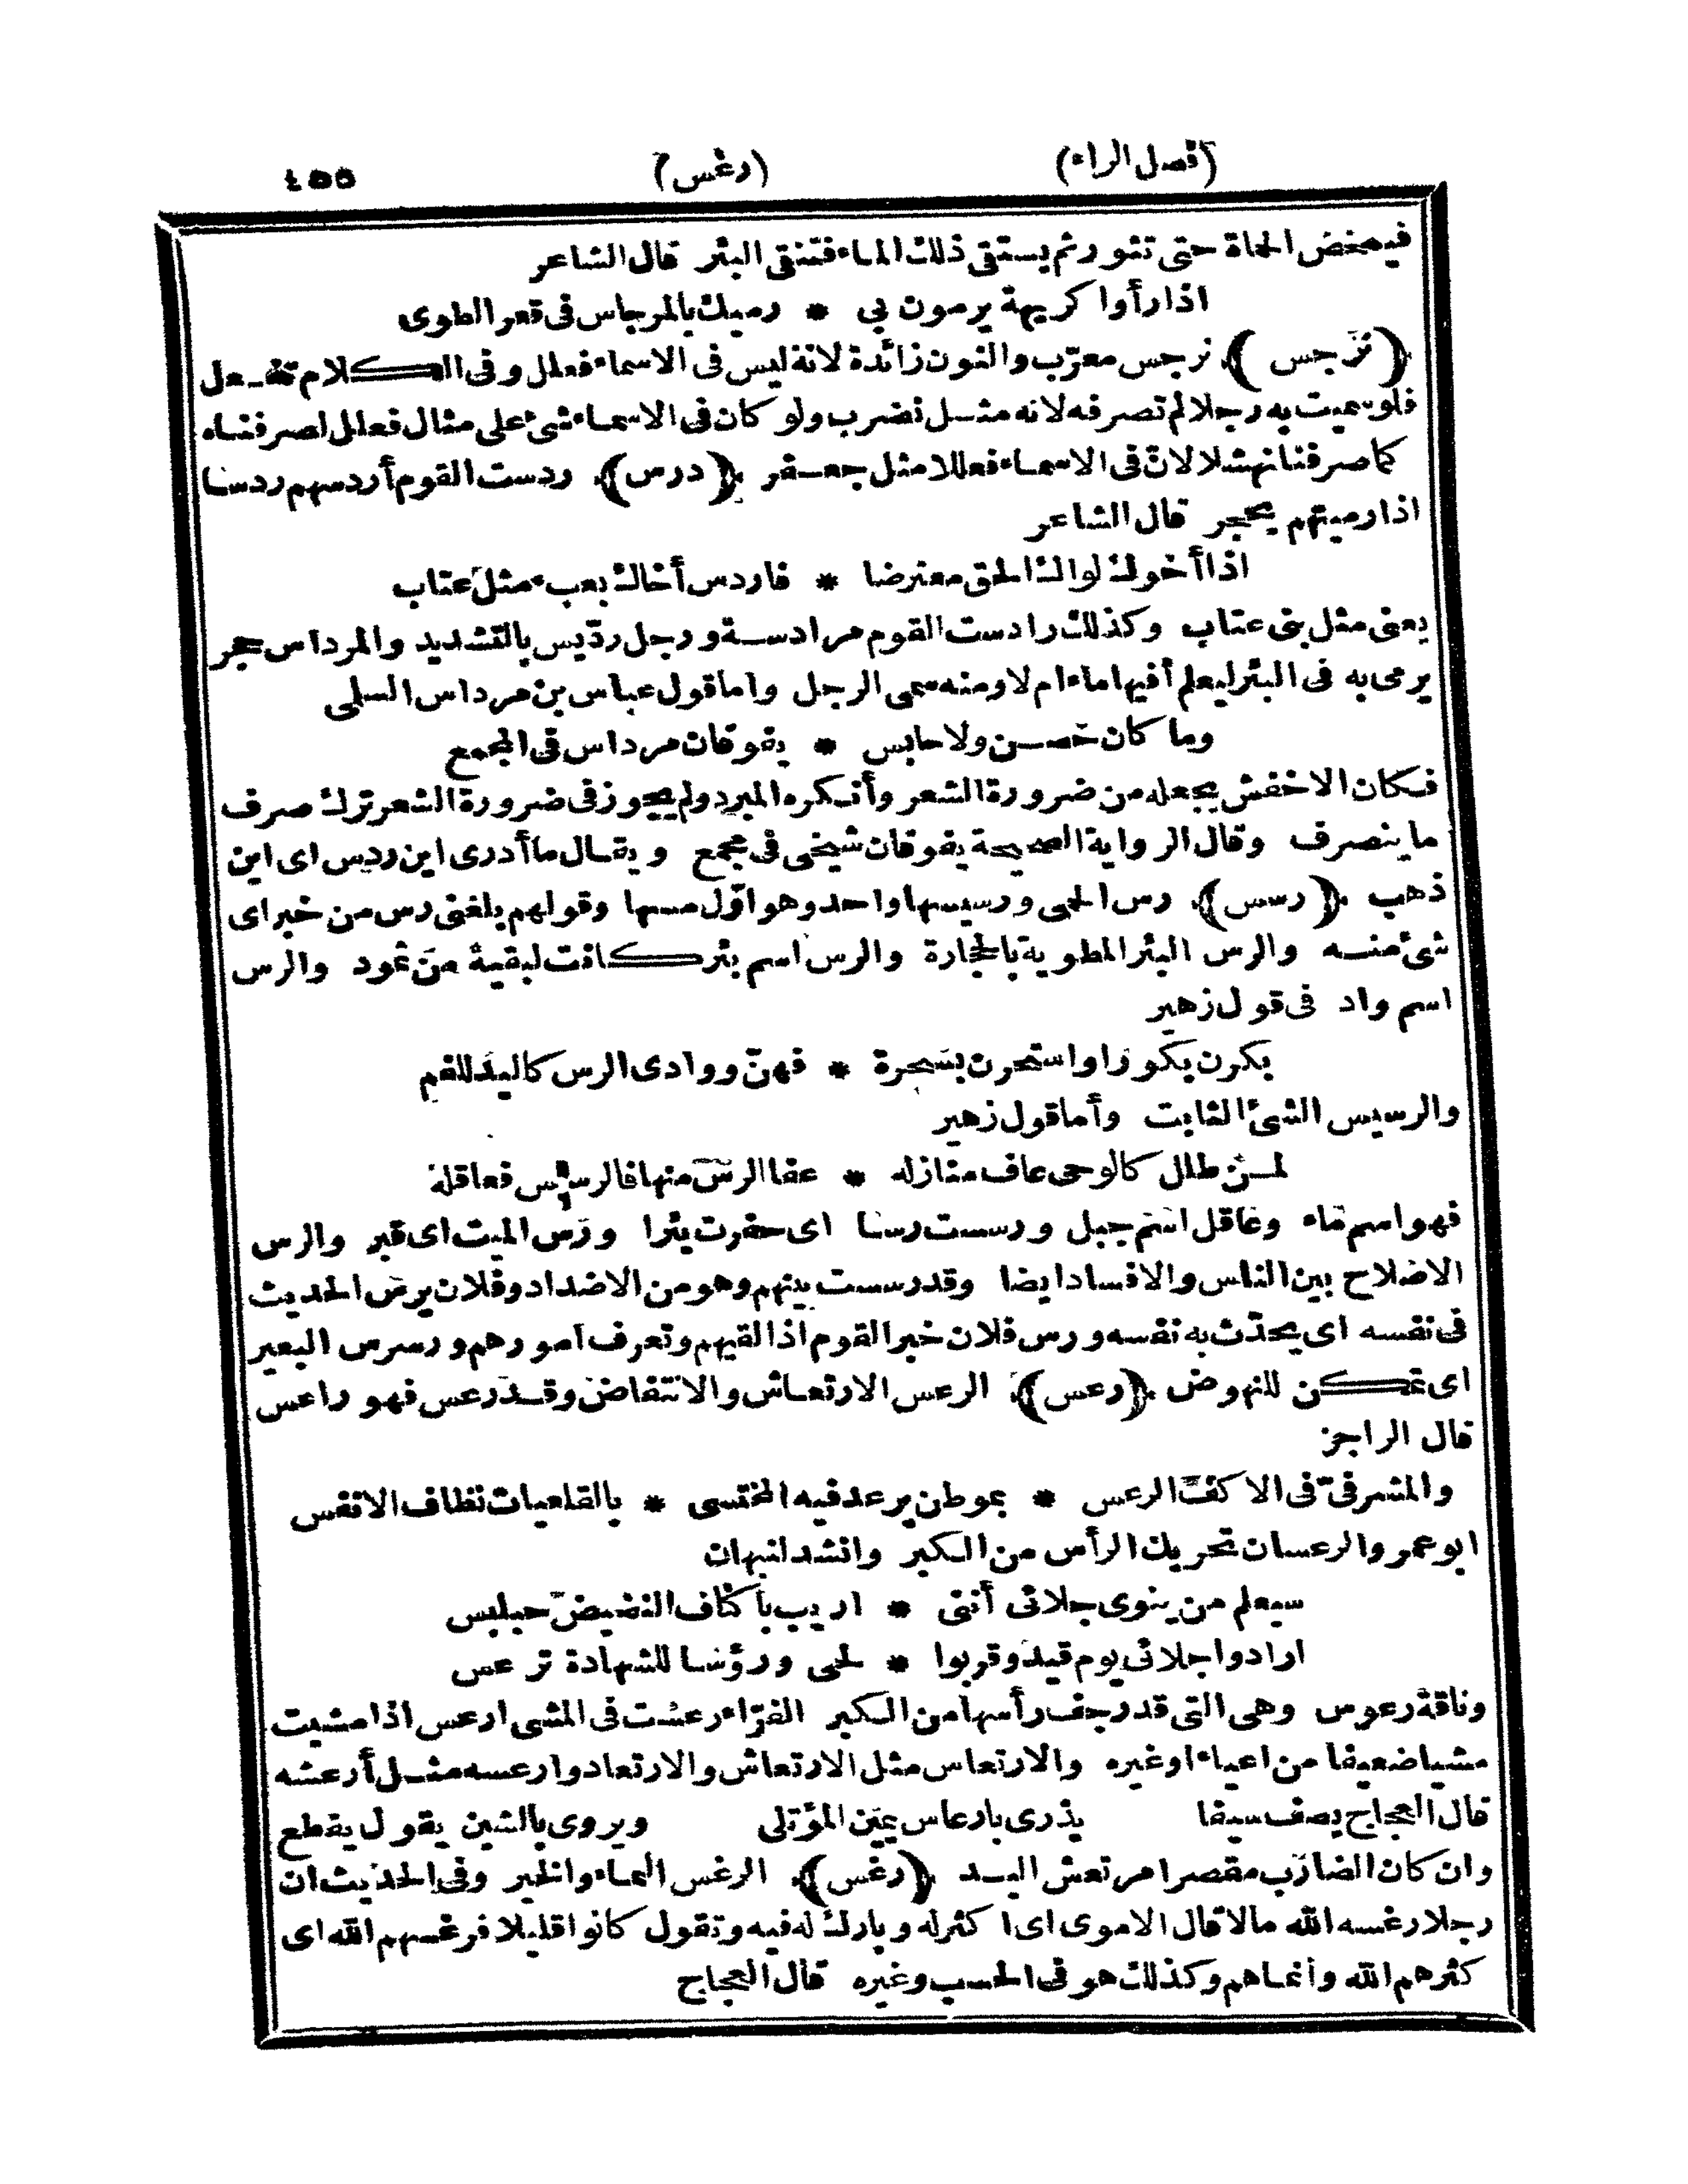 (فصل الراء) (رغس) ٤٥٥
فيمخض الحماة حتى تثور ثم يستقى ذلك الماء فتنقى البئر قال الشاعر
اذا رأوا كريهة يرمون بي * رميك بالمرجاس فى قعر الطوى
﴿نرجس﴾ نرجس معرّب والنون زائدة لانه ليس فى الاسماء فعلل وفى الكلام نفعل
فلو سميت به رجلا لم تصرفه لانه مثل نضرب ولو كان فى الاسماء شئ على مثال فعلل لصرفناه
كما صرفنا نهشلا لانّ فى الاسماء فعللا مثل جعفر ﴿درس﴾ ردست القوم أردسهم ردسا
اذا رميتهم بحجر قال الشاعر
اذا أخوك لواك الحق معترضا * فاردس أخاك بعبء مثل عتاب
يعنى مثل بنى عتاب وكذلك رادست القوم مرادسة ورجل ردّيس بالتشديد والمرداس حجر
يرمى به فى البئر ليعلم أفيها ماء ام لا ومنه سمى الرجل واما قول عباس بن مرداس السلمى
وما كان حصن ولا حابس * يفوقان مرداس فى المجمع
فكان الاخفش يجعله من ضرورة الشعر وأنكره المبرد ولم يجوز فى ضرورة الشعر ترك صرف
ما ينصرف وقال الرواية الصحيحة يفوقان شيخى فى مجمع ويقال ما أدرى اين ردس اى اين
ذهب ﴿رسس﴾ رس الحمى ورسيسها واحد وهو اوّل مسها وقولهم بلغنى رس من خبر اى
شئ منه والرس البئر المطوية بالحجارة والرس اسم بئر كانت لبقية من ثمود والرس
اسم واد فى قول زهير
بكرن بكورا واستحرن بسحرة * فهنّ ووادى الرس كاليد للفم
والرسيس الشئ الثابت وأما قول زهير
لمن طلل كالوحى عاف منازله * عفا الرسّ منها فالرسيس فعاقله
فهو اسم ماء وعاقل اسم جبل ورسست رسا اى حفرت بئرا ورس الميت اى قبر والرس
الاصلاح بين الناس والافساد ايضا وقد رسست بينهم وهو من الاضداد وفلان يرس الحديث
فى نفسه اى يحدّث به نفسه ورس فلان خبر القوم اذا لقيهم وتعرف امورهم ورسرس البعير
اى تمكن للنهوض ﴿رعس﴾ الرعس الارتعاش والانتفاض وقد رعس فهو راعس
قال الراجز
والمشرفىّ فى الاكفّ الرعس * بموطن يرعد فيه المختسى * بالقلعيات نطاف الانفس
ابو عمرو الرعسان تحريك الرأس من الكبر وانشد لنبهان
سيعلم من ينوى جلائى أننى * اريب بأكناف النضيض حبلبس
ارادوا جلائى يوم فيد وقربوا * لحى ورؤسا للشهادة ترعس
وناقة رعوس وهى التى قد رجف رأسها من الكبر الفرّاء رعست فى المشى ارعس اذا مشيت
مشيا ضعيفا من اعياء او غيره والارتعاس مثل الارتعاش والارتعاد وارعسه مثل أرعشه
قال العجاج يصف سيفا يذرى بارعاس يمين المؤتلى ويروى بالشين يقول يقطع
وان كان الضارب مقصرا مرتعش اليد ﴿رغس﴾ الرغس النماء والخير وفى الحديث ان
رجلا رغسه الله مالا قال الاموى اى اكثر له وبارك له فيه وتقول كانوا قليلا فرغسهم الله اى
كثرهم الله وأنماهم وكذلك هو فى الحسب وغيره قال العجاج